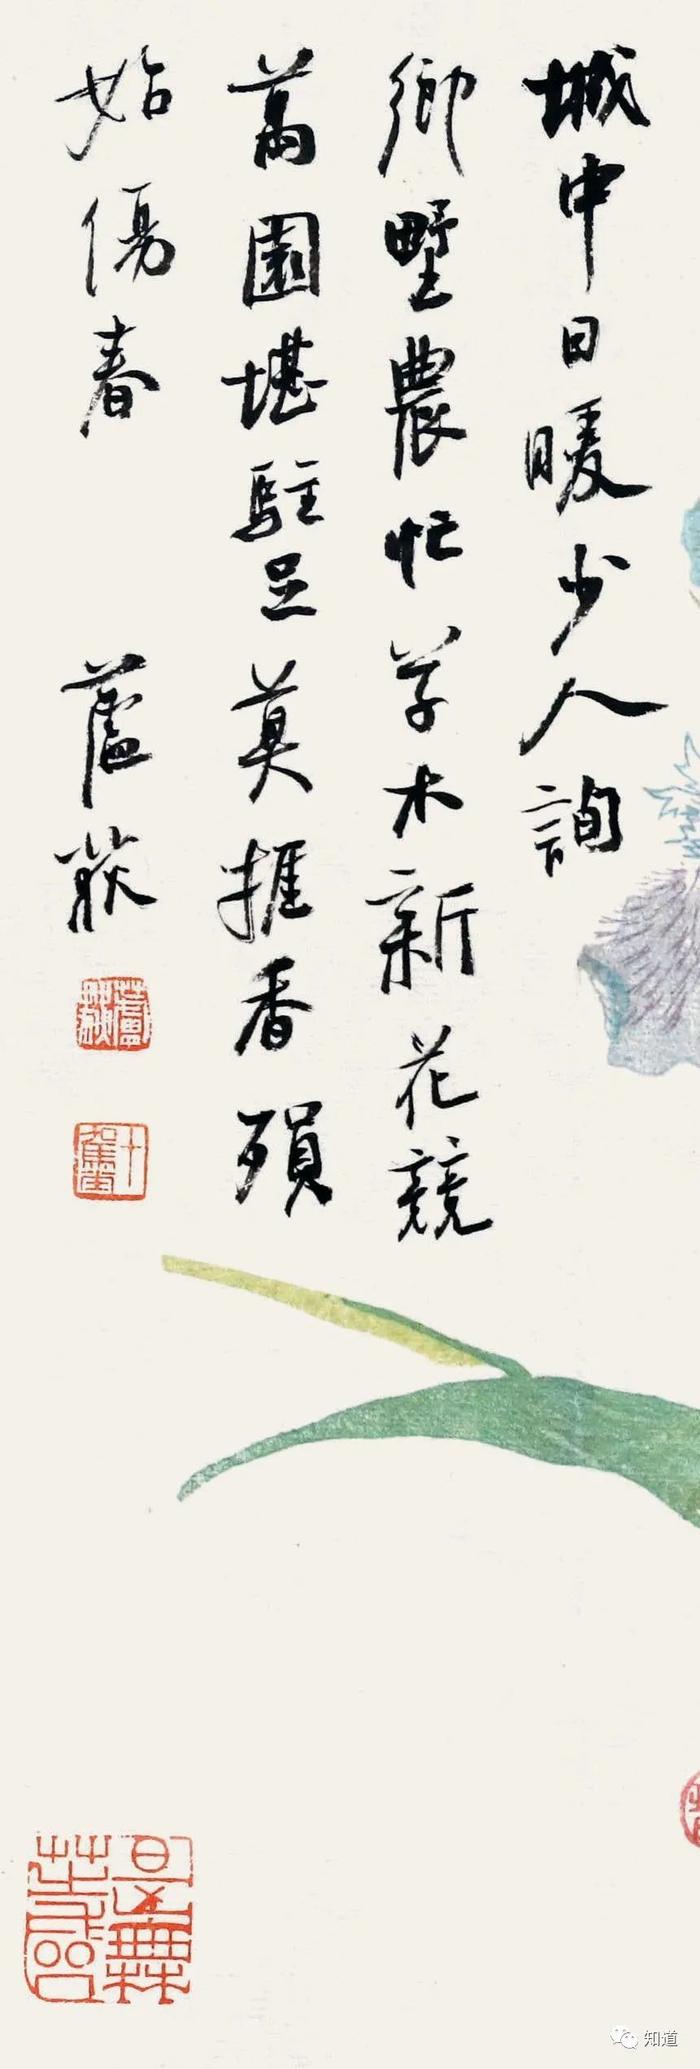 城中日暖少人詢
鄉墅農忙草木新花競
萬園堪駐足莫捱香殞
始傷春
蘆荻
知道